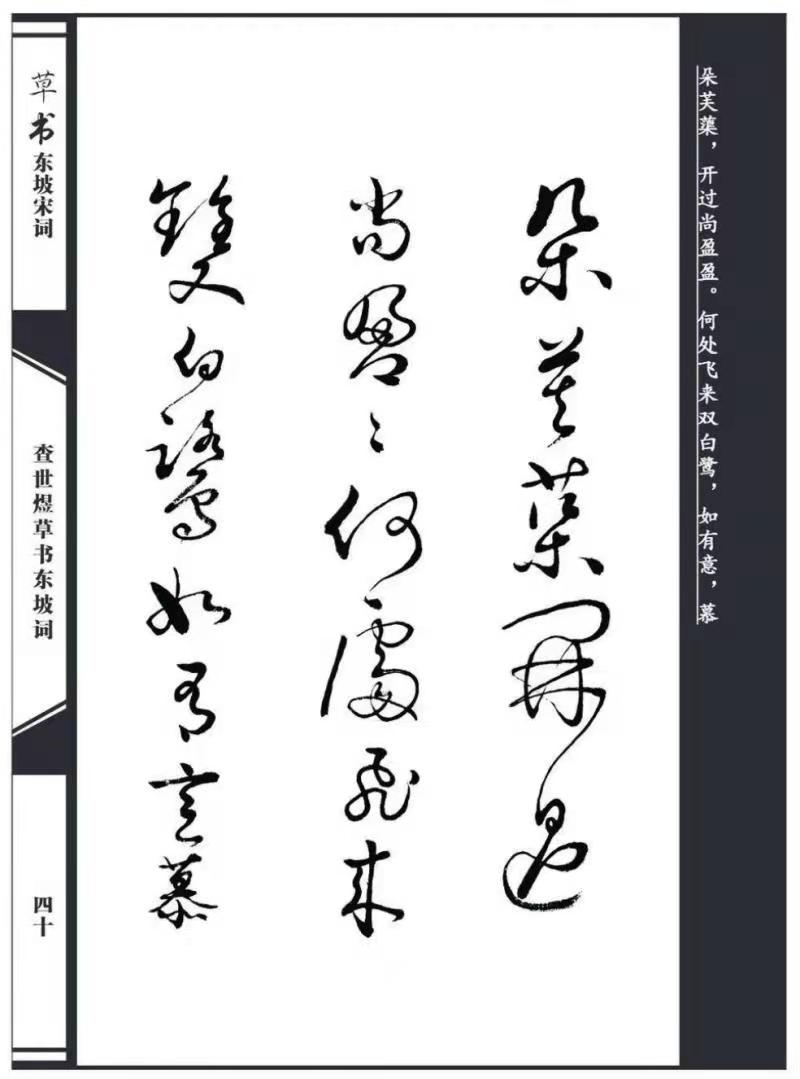 朵芙蕖，开过尚盈盈。何处飞来双白鹭，如有意，慕
朵芙蕖開過
尚盈〻何處飛来
雙白鷺如有意慕
草书东坡宋词
查世煜草书东坡词
四十